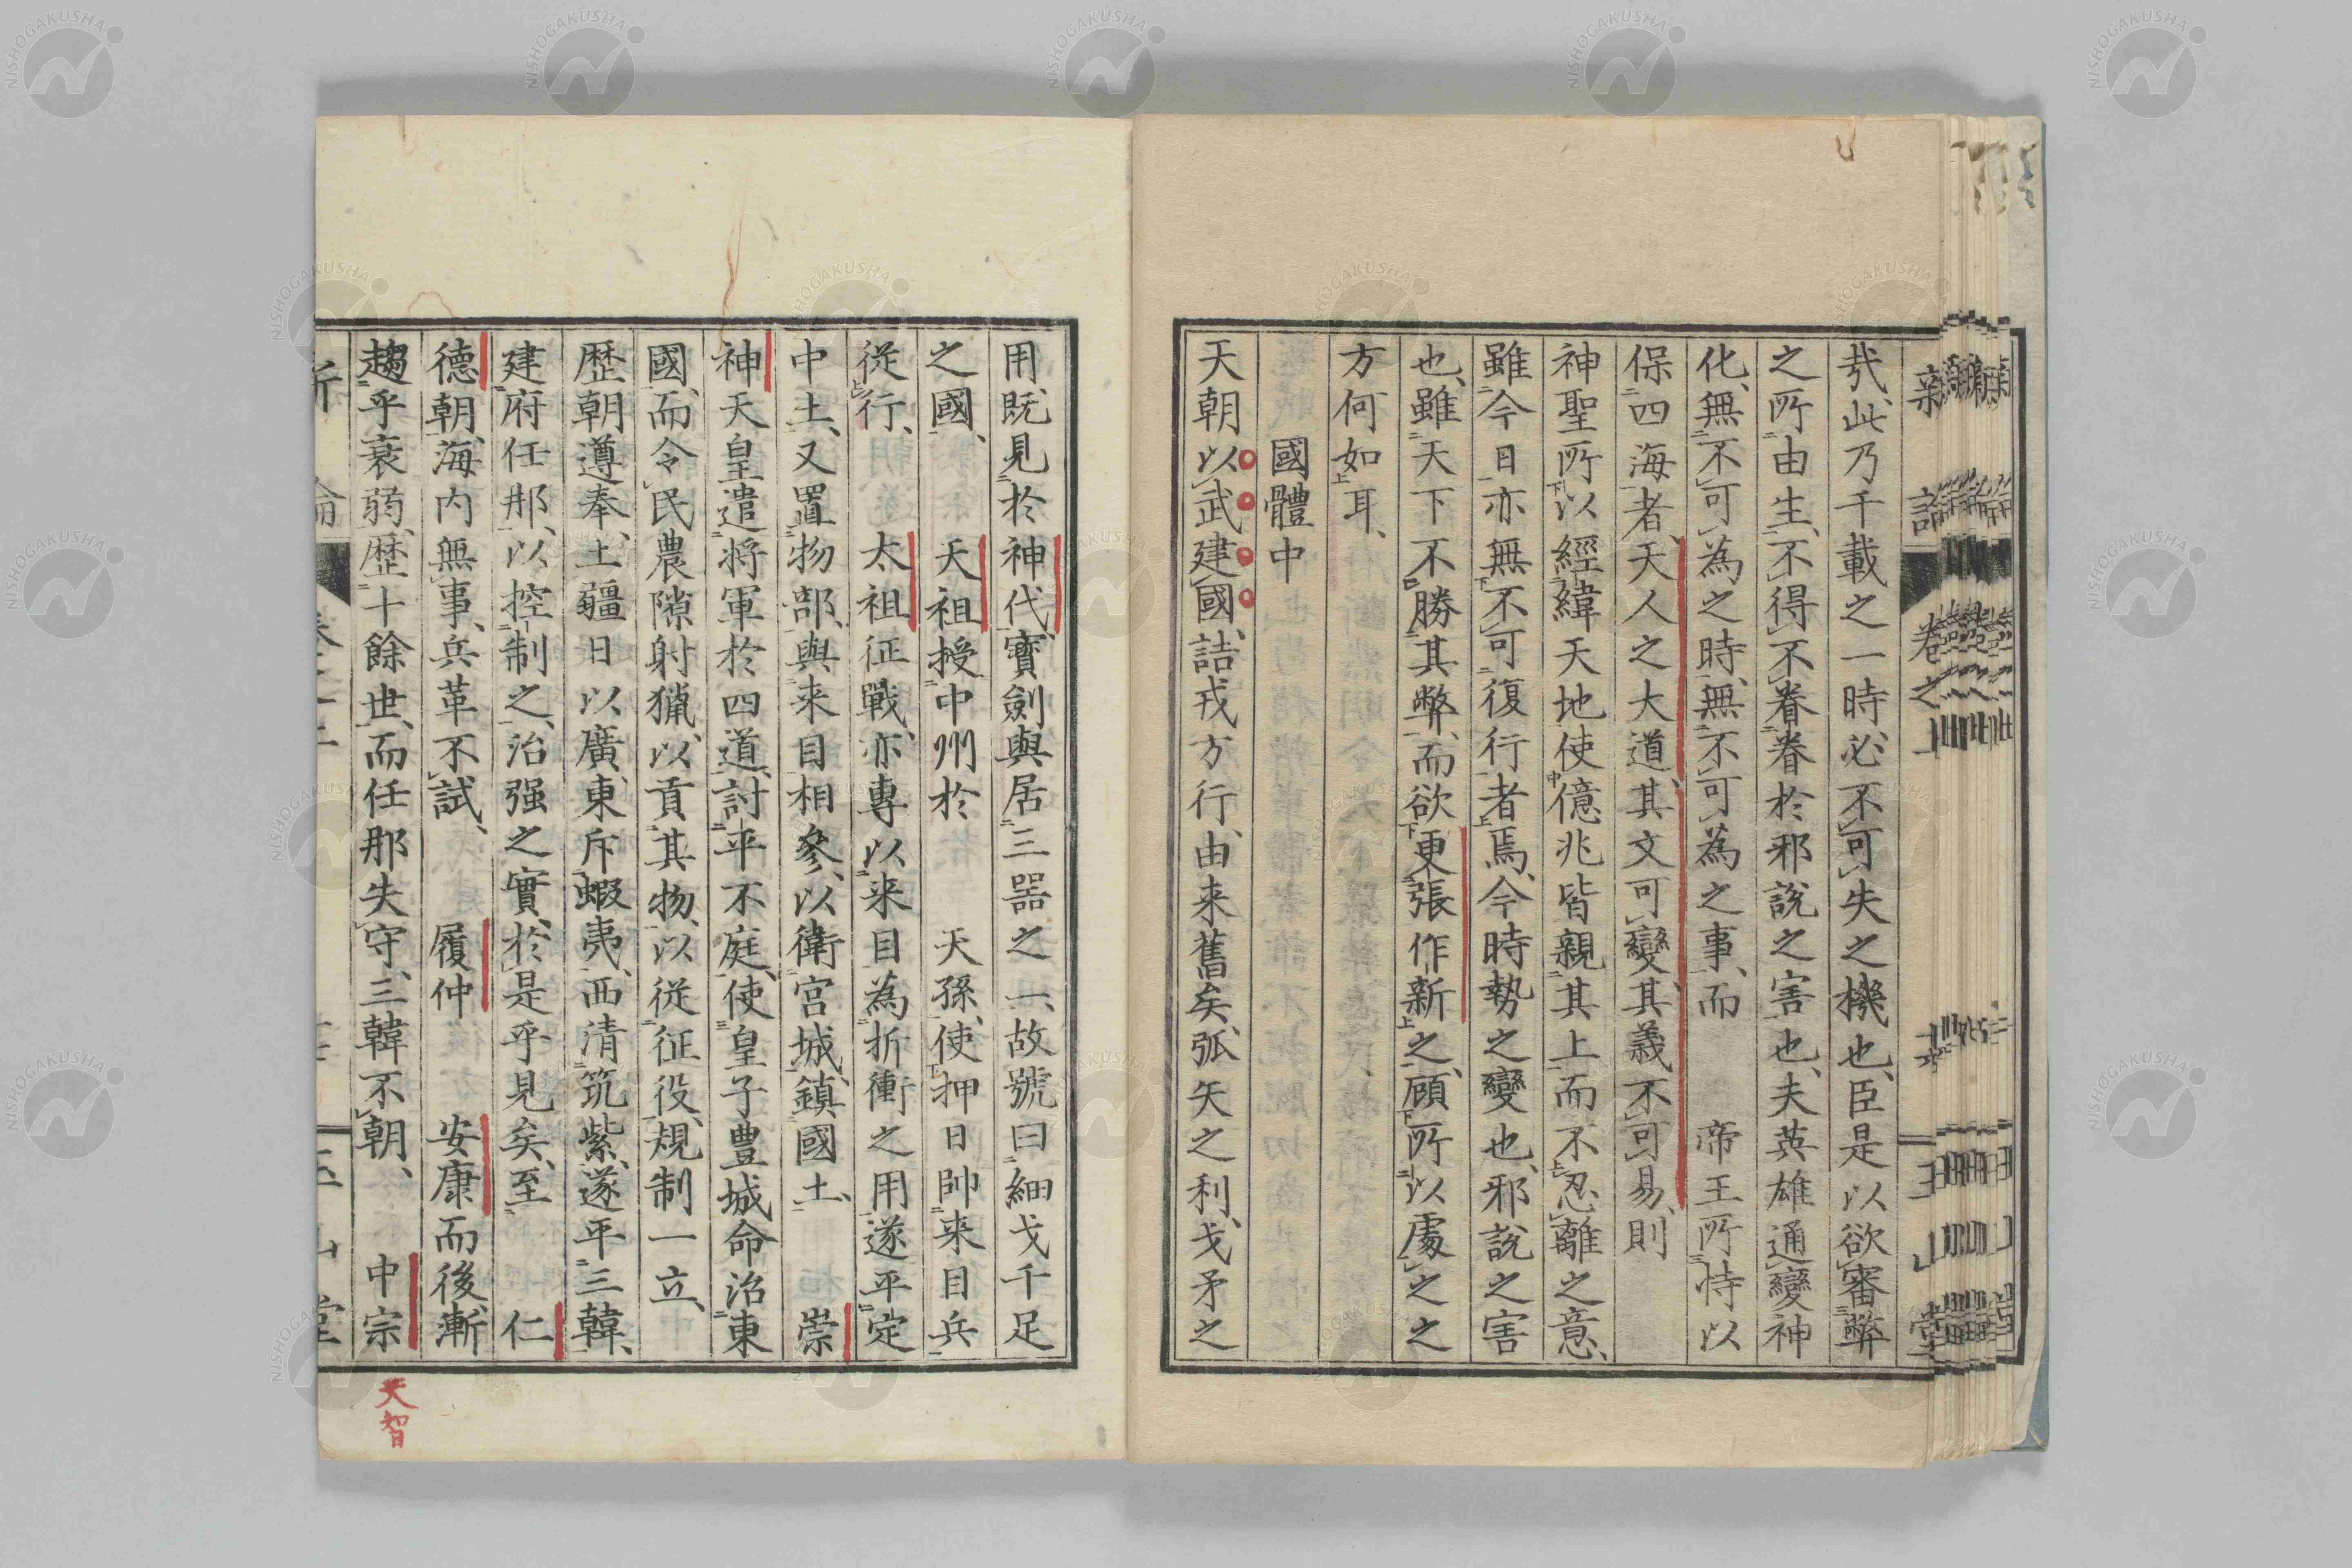 哉、此乃千載之一時、必不可失之機也、臣是以欲審弊
之所由生、不得不眷眷於邪説之害也、夫英雄通變神
化、無不可為之時、無不可為之事、而　帝王所恃以
保四海者、天人之大道、其文可變、其義不可易、則
神聖所以經緯天地使億兆皆親其上而不忍離之意、
雖今日亦無不可復行者焉、今時勢之變也、邪説之害
也、雖天下不勝其弊、而欲更張作新之、顧所以處之之
方何如耳、
國體中
天朝以武建國、詰戎方行、由来舊矣、弧矢之利、戈矛之
用、既見於神代、寶劍與居三器之一、故號曰細戈千足
之國、天祖授中州於　天孫、使押日帥来目兵
従行、太祖征戰、亦專以来目為折衝之用、遂平定
中土、又置物部、與来目相參、以衛宮城、鎮國土、崇
神天皇遣將軍於四道、討平不庭、使皇子豊城命治東
國、而令民農隙射獵、以貢其物、以従征役、規制一立、
歴朝遵奉、土疆日以廣、東斥蝦夷、西清筑紫、遂平三韓、
建府任那、以控制之、治强之實、於是乎見矣、至　仁
德朝、海内無事、兵革不試、履仲　安康而後、漸
趨乎衰弱、歴十餘世、而任那失守、三韓不朝、　中宗
天智
新論　卷之上　玉山堂